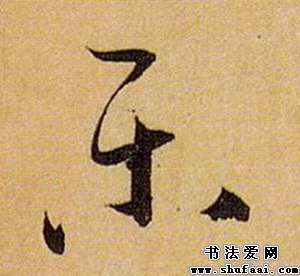 乐
书法爱网
www.shufaai.com